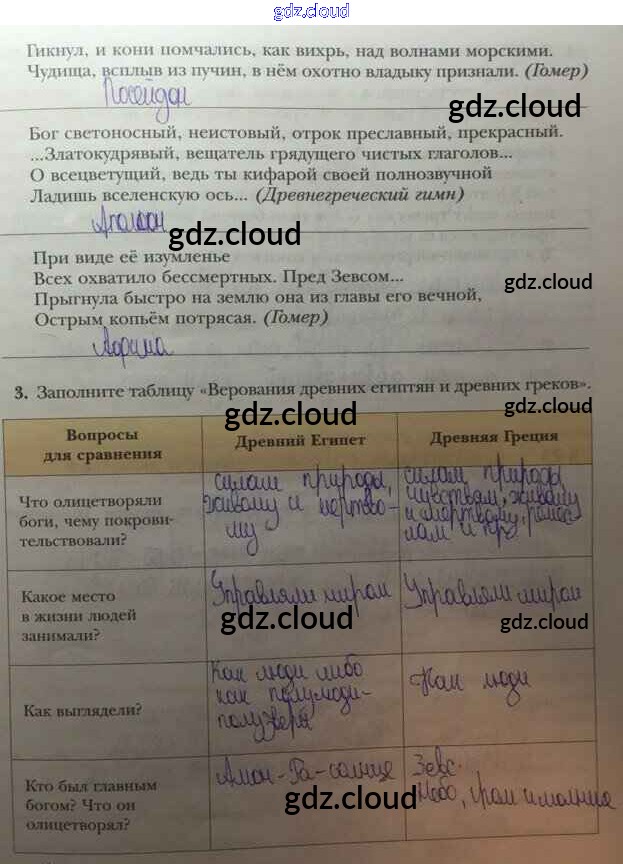 gdz.cloud
Гикнул, и кони помчались, как вихрь, над волнами морскими.
Чудища, всплыв из пучин, в нём охотно владыку признали. (Гомер)
Посейдон
gdz.cloud
Бог светоносный, неистовый, отрок преславный, прекрасный.
...Златокудрявый, вещатель грядущего чистых глаголов...
О всецветущий, ведь ты кифарой своей полнозвучной
Ладишь вселенскую ось... (Древнегреческий гимн)
Аполлон
gdz.cloud
При виде её изумленье
Всех охватило бессмертных. Пред Зевсом...
gdz.cloud
Прыгнула быстро на землю она из главы его вечной,
Острым копьём потрясая. (Гомер)
Афина
3. Заполните таблицу «Верования древних египтян и древних греков».
gdz.cloud
gdz.cloud
Вопросы
для сравнения
Древний Египет
Древняя Греция
Что олицетворяли
боги, чему покрови-
тельствовали?
силам природы,
живому и мёртво-
му
силам природы
чувствам, живому
и мёртвому, ремёс
лам и пр
Какое место
в жизни людей
занимали?
Управляли миром
gdz.cloud
Управляли миром
gdz.cloud
Как выглядели?
Как люди либо
как полулюди-
полузвери
Как люди
Кто был главным
богом? Что он
олицетворял?
Амон-Ра-солнце
gdz.cloud
Зевс.
Небо, гром и молния